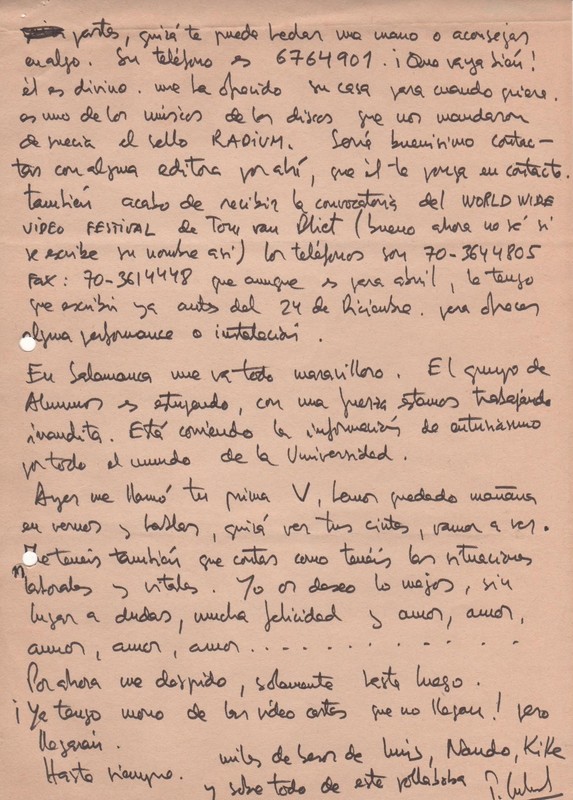 partes, quizá te pueda hechar una mano o aconsejar
en algo. Su teléfono es 6764901. ¡Que vaya bién!
él es divino. me ha ofrecido su casa para cuando quiera.
es uno de los músicos de los discos que nos mandaron
de suecia el sello RADIUM. Sería buenisimo contac-
tar con alguna editora por ahí, que él te ponga en contacto.
también acabo de recibir la convocatoria del WORLD WIDE
VIDEO FESTIVAL de Tom van Vliet (bueno ahora no sé si
se escribe su nombre así) los teléfonos son 70-3644805
FAX: 70-3614448 que aunque es para abril, le tengo
que escribir ya antes del 24 de Diciembre. para ofrecer
alguna performance o instalación.
En Salamanca me va todo maravilloso. El grupo de
Alumnos es estupendo, con una fuerza estamos trabajando
inaudita. Está corriendo la información de entusiasmo
por todo el mundo de la Universidad.
Ayer me llamó tu prima V, hemos quedado mañana
en vernos y hablar, quizá ver tus cintas, vamos a ver.
Me teneis también que contar como tenéis las situaciones
laborales y vitales. Yo os deseo lo mejor, sin
lugar a dudas, mucha felicidad y amor, amor,
amor, amor, amor. . . . . . . . . . . . .
Por ahora me despido, solamente hasta luego.
¡Ya tengo mono de las video cartas que no llegan! pero
llegarán.
Hasta siempre.
miles de besos de Luis, Nando, Kike
y sobre todo de este pollaboba